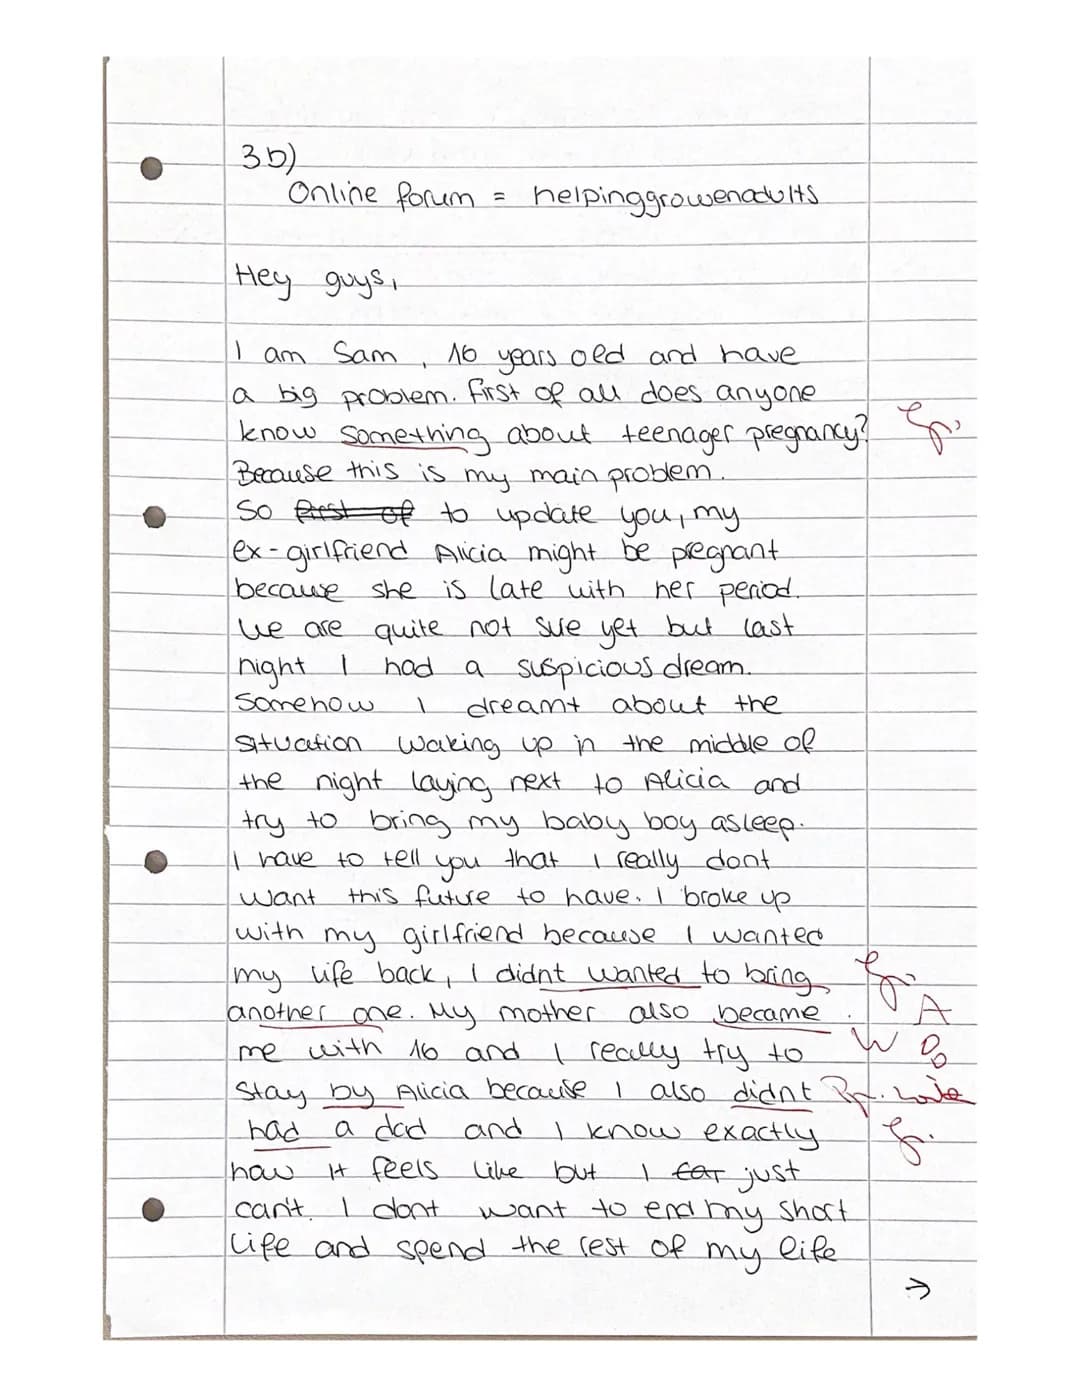 3b)
Online forum = helpinggrowenadults
Hey guys,
I am Sam, 16 years old and have
a big problem. First of all does anyone
know something about teenager pregnancy?
Because this is my main problem.
So first of to update you, my
ex-girlfriend Alicia might be pregnant
because she is late with her period.
We are quite not sure yet but last
night I had a suspicious dream.
Somehow I dreamt about the
situation waking up in the middle of
the night laying next to Alicia and
try to bring my baby boy asleep.
I have to tell you that I really dont
want this future to have. I broke up
with my girlfriend because I wanted
my life back, I didnt wanted to bring
another one. My mother also became A
me with 16 and I really try to W
stay by Alicia because I also didnt
had a dad and I know exactly
how it feels like but I just
can't. I dont want to end my short
life and spend the rest of my life
→